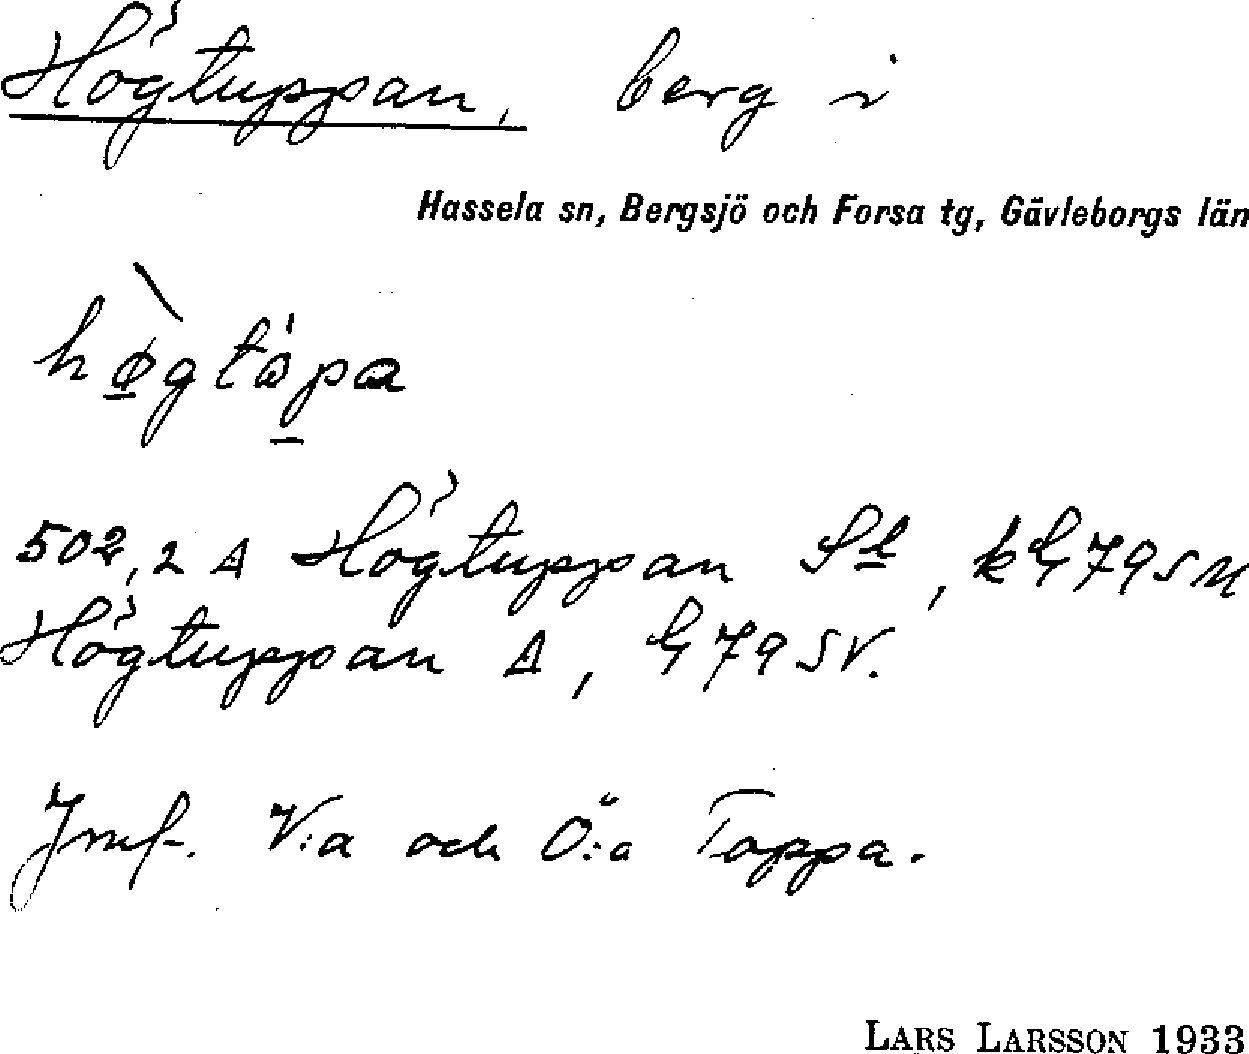 Högtuppan, berg i
Hassela sn, Bergsjö och Forsa tg, Gävleborgs län
hø̀gtɷ́pa
502, 2 A Högtuppan St, k G 79 SN
Högtuppan A, G 79 SV.
Jmf. V:a och Ö:a Toppa.
LARS LARSSON 1933